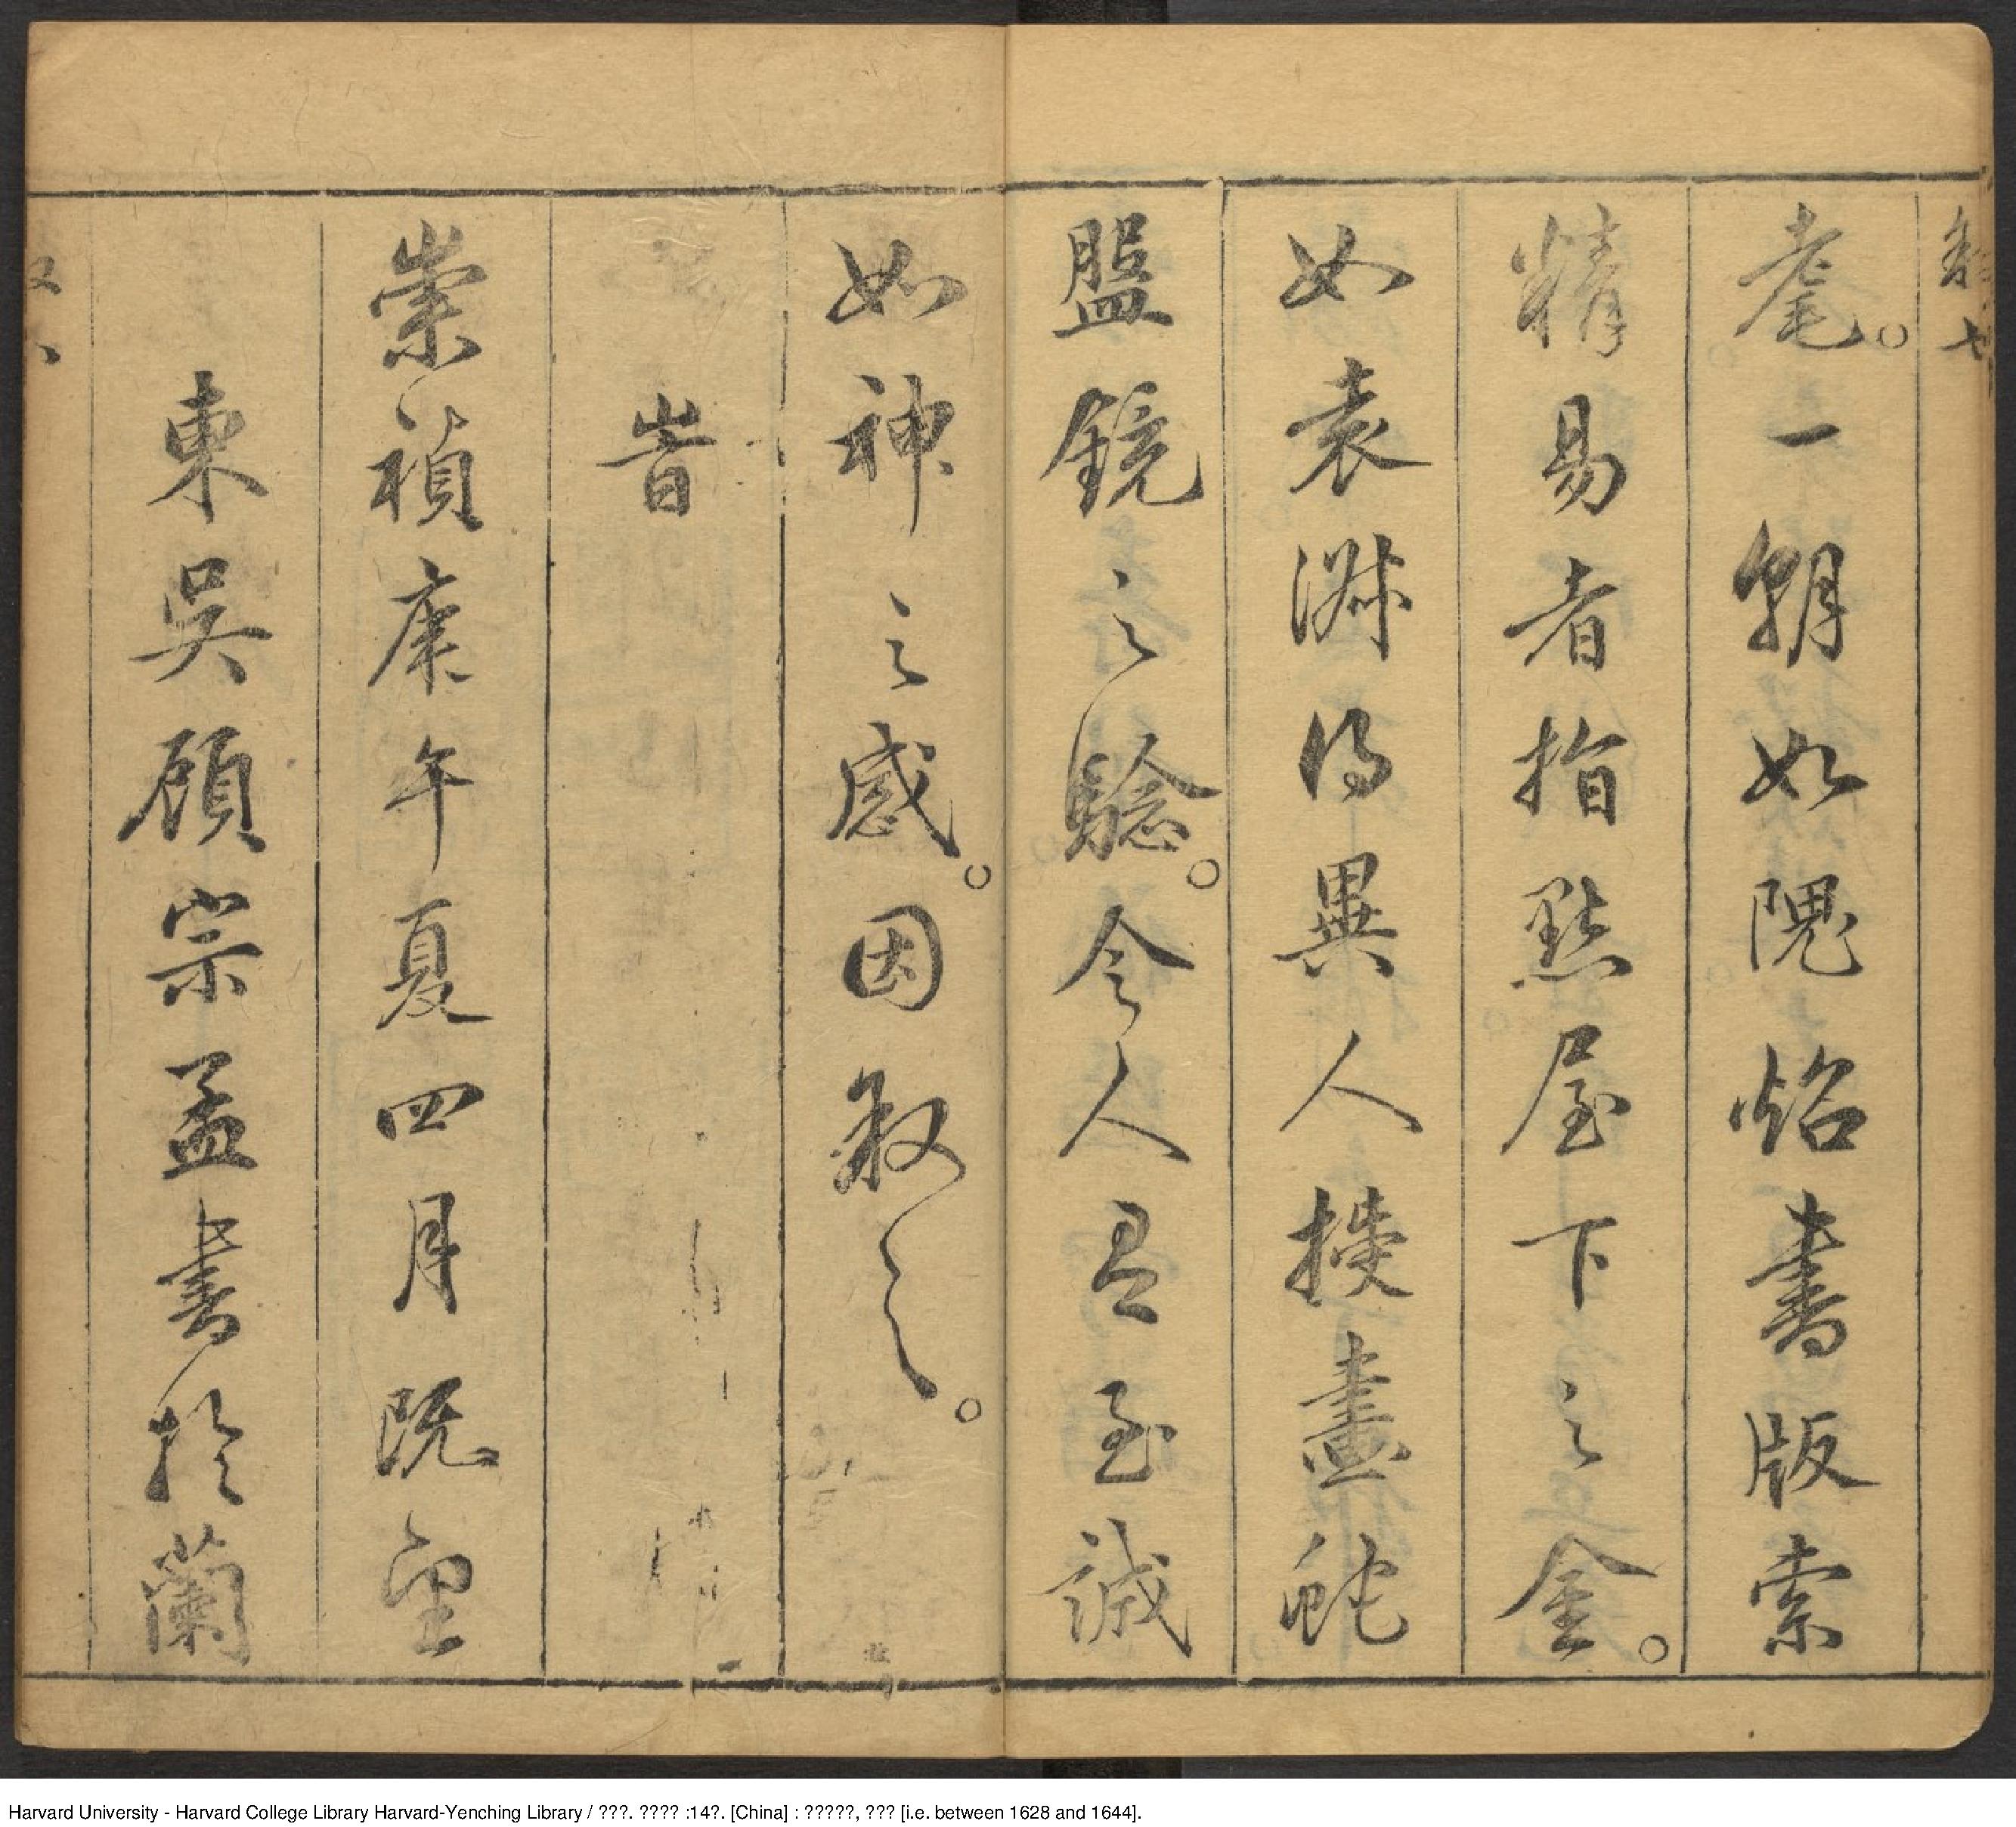 叙 七
耄。一朝如隗炤書版索
精易者指點屋下之金。
如袁淑得異人授畫蛇
盥鏡之驗。令人且至誠
如神之感。因叙之。
旹
崇禎庚午夏四月既望
東吳顧宗孟書於蘭
Harvard University - Harvard College Library Harvard-Yenching Library / ???. ???? :14?. [China] : ?????, ??? [i.e. between 1628 and 1644].